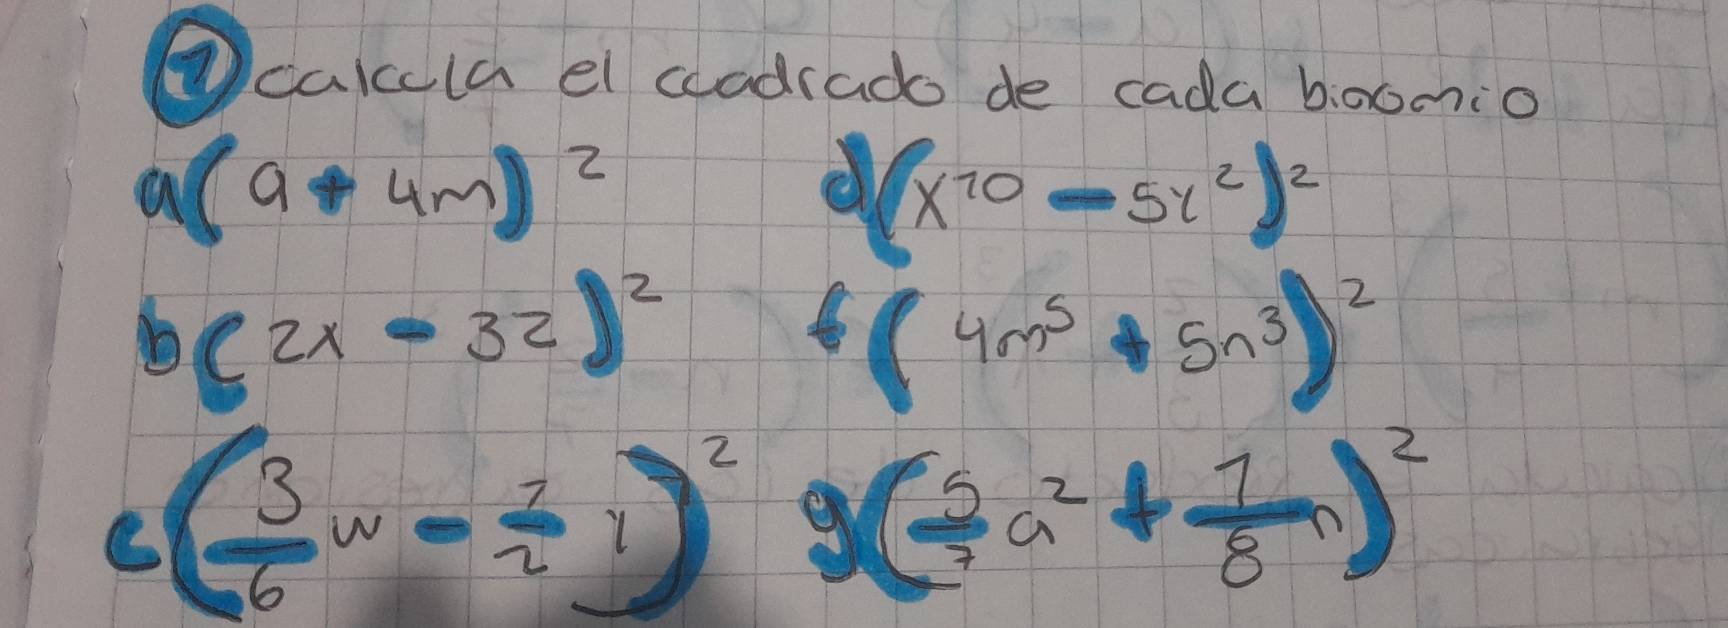 ① calcula el cuadrado de cada binomio
a (a + 4m)²
d (x¹⁰ - 5y²)²
b (2x - 3z)²
f (4m⁵ + 5n³)²
c (3/6 w - 1/2 y)²
g (5/7 a² + 1/8 n)²